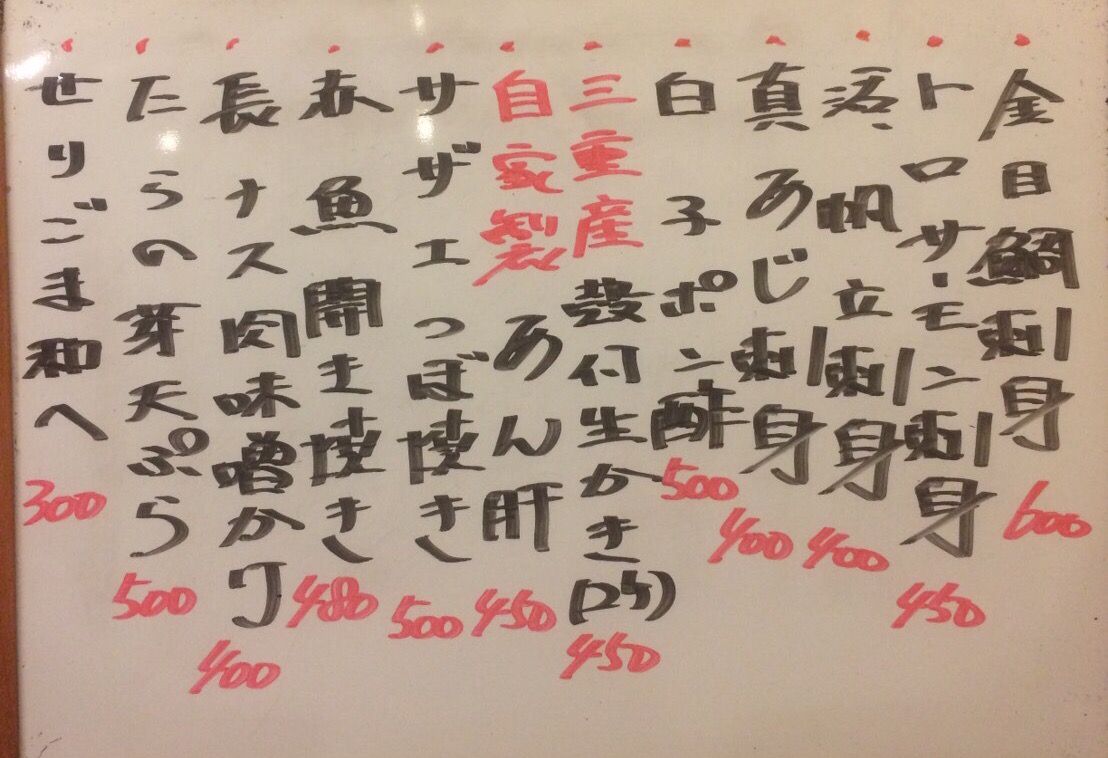 金目鯛刺身 600
トロサーモン刺身 450
活帆立刺身 400
真あじ刺身 400
白子ポン酢 500
三重産殻付生かき(2ケ) 450
自家製あん肝 450
サザエつぼ焼き 500
赤魚開き焼き 480
長ナス肉味噌かけ 400
たらの芽天ぷら 500
せりごま和へ 300